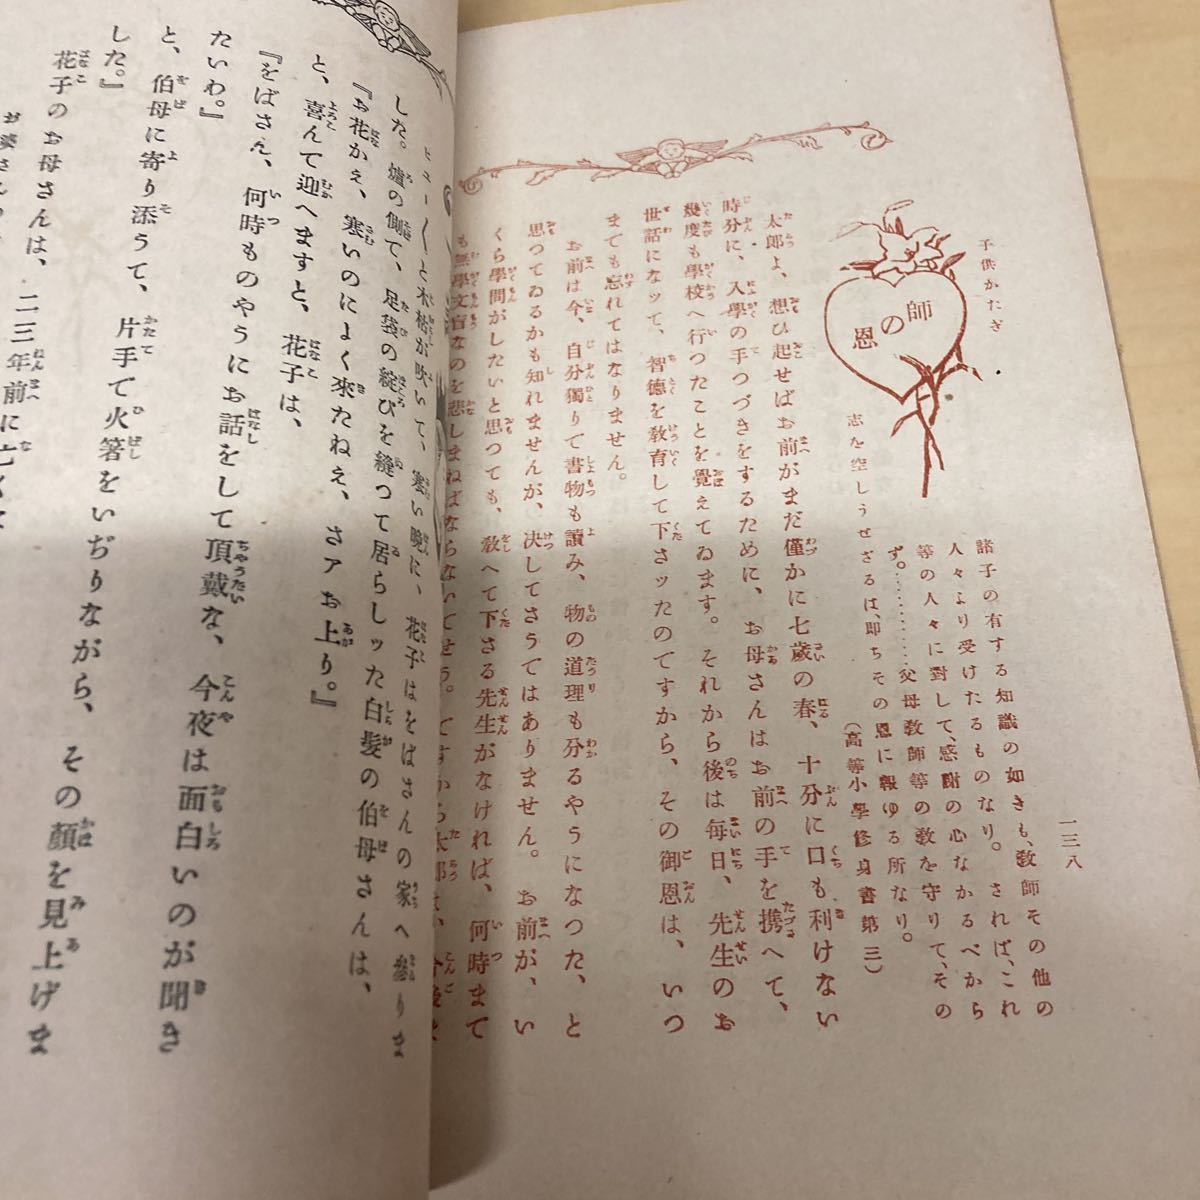 子供かたぎ
一三八
師の恩
諸子の有する知識の如きも、敎師その他の
人々より受けたるものなり。されば、これ
等の人々に對して、感謝の心なかるべから
ず。………父母敎師等の敎を守りて、その
志を空しうせざるは、即ちその恩に報ゆる所なり。
(高等小學修身書第三)
太郎よ、想ひ起せばお前がまだ僅かに七歳の春、十分に口も利けない
時分に、入學の手つづきをするために、お母さんはお前の手を携へて、
幾度も學校へ行つたことを覺えてゐます。それから後は毎日、先生のお
世話になッて、智德を敎育して下さッたのですから、その御恩は、いつ
までも忘れてはなりません。
お前は今、自分獨りで書物も讀み、物の道理も分るやうになつた、と
思つてゐるかも知れませんが、決してさうではありません。お前が、い
くら學問がしたいと思つても、敎へて下さる先生がなければ、何時まて
も無學文盲なのを悲しまねばならないてせう。ですから太郎は、今後は
ヒユー〱と木枯が吹いて、寒い晩に、花子はをばさんの家へ參りま
した。爐の側て、足袋の綻びを縫つて居らしッた白髮の伯母さんは、
『お花かえ、寒いのによく來たねえ、さアお上り。』
と、喜んて迎へますと、花子は、
『をばさん、何時ものやうにお話をして頂戴な、今夜は面白いのが聞き
たいわ。』
と、伯母に寄り添うて、片手て火箸をいぢりながら、その顏を見上げま
した。』
花子のお母さんは、二三年前に亡くて
お婆さん